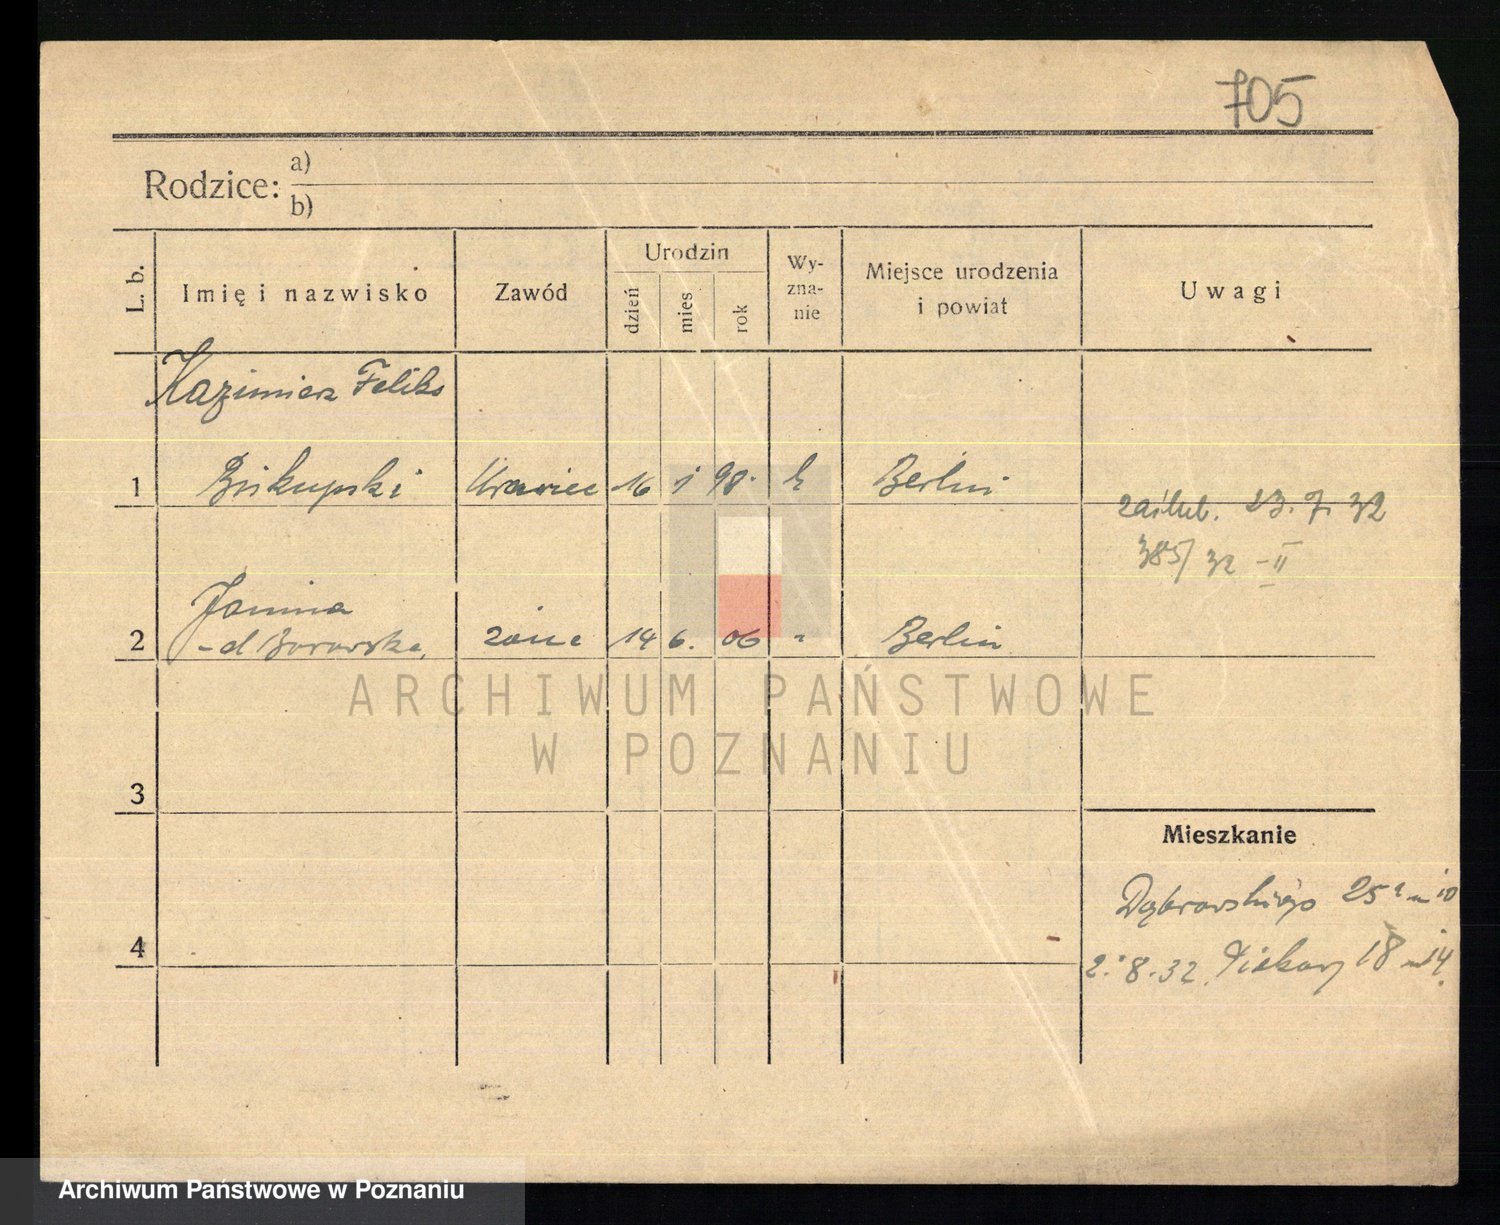 705
Rodzice: a)
b)
L. b.
Imię i nazwisko
Zawód
Urodzin
dzień
mies
rok
Wy-
zna-
nie
Miejsce urodzenia
i powiat
Uwagi
Kazimierz Feliks
1 Biskupski Krawiec 16 1 98. k Berlin
zaślub. 23. 7. 32
385/32 - II
Janina
2 -d Borowska żona 14 6. 06 " Berlin
ARCHIWUM PAŃSTWOWE
W POZNANIU
3
Mieszkanie
Dąbrowskiego 25a m 10
4
2. 8. 32. Piekary 18 m 14.
Archiwum Państwowe w Poznaniu